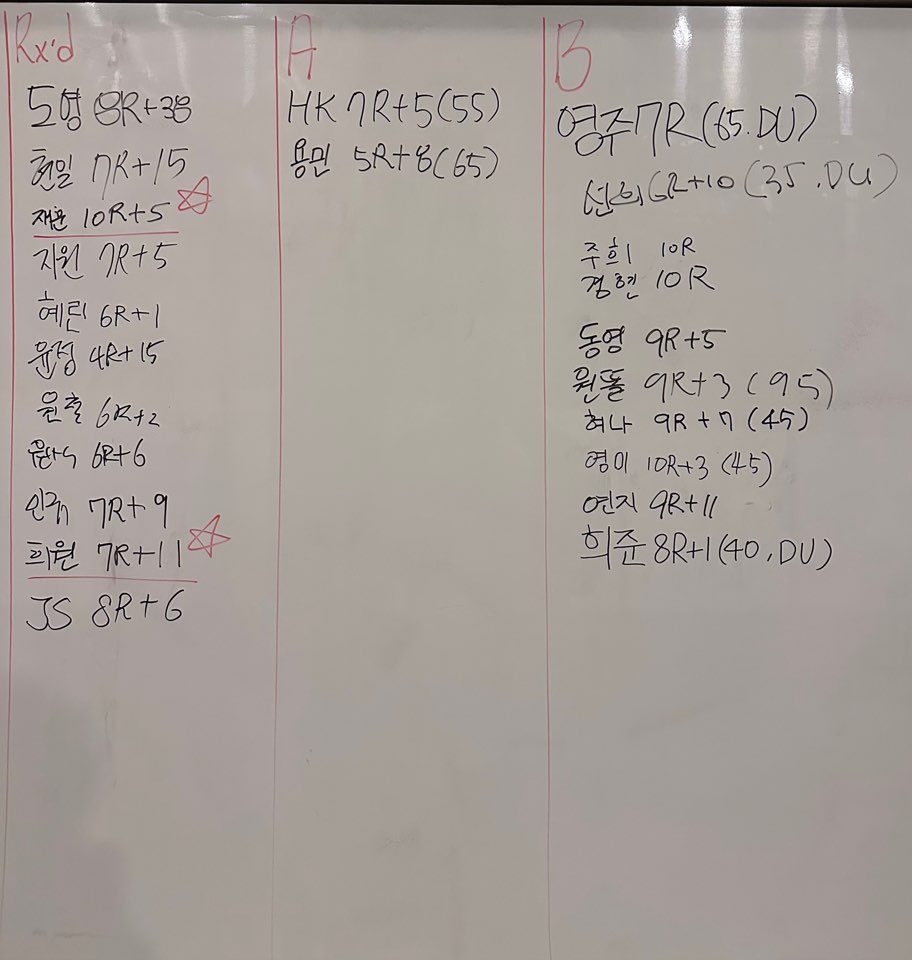 Rx'd
도영 8R+38
현일 7R+15
재훈 10R+5
지원 7R+5
혜린 6R+1
윤정 4R+15
윤철 6R+2
6R+6
7R+9
희원 7R+11
JS 8R+6
A
HK 7R+5(55)
용민 5R+8(65)
B
영주 7R(65.DU)
선희 6R+10(35.DU)
주희 10R
경현 10R
동영 9R+5
원똘 9R+3(95)
혀나 9R+7(45)
영미 10R+3(45)
연지 9R+11
희준 8R+1(40,DU)